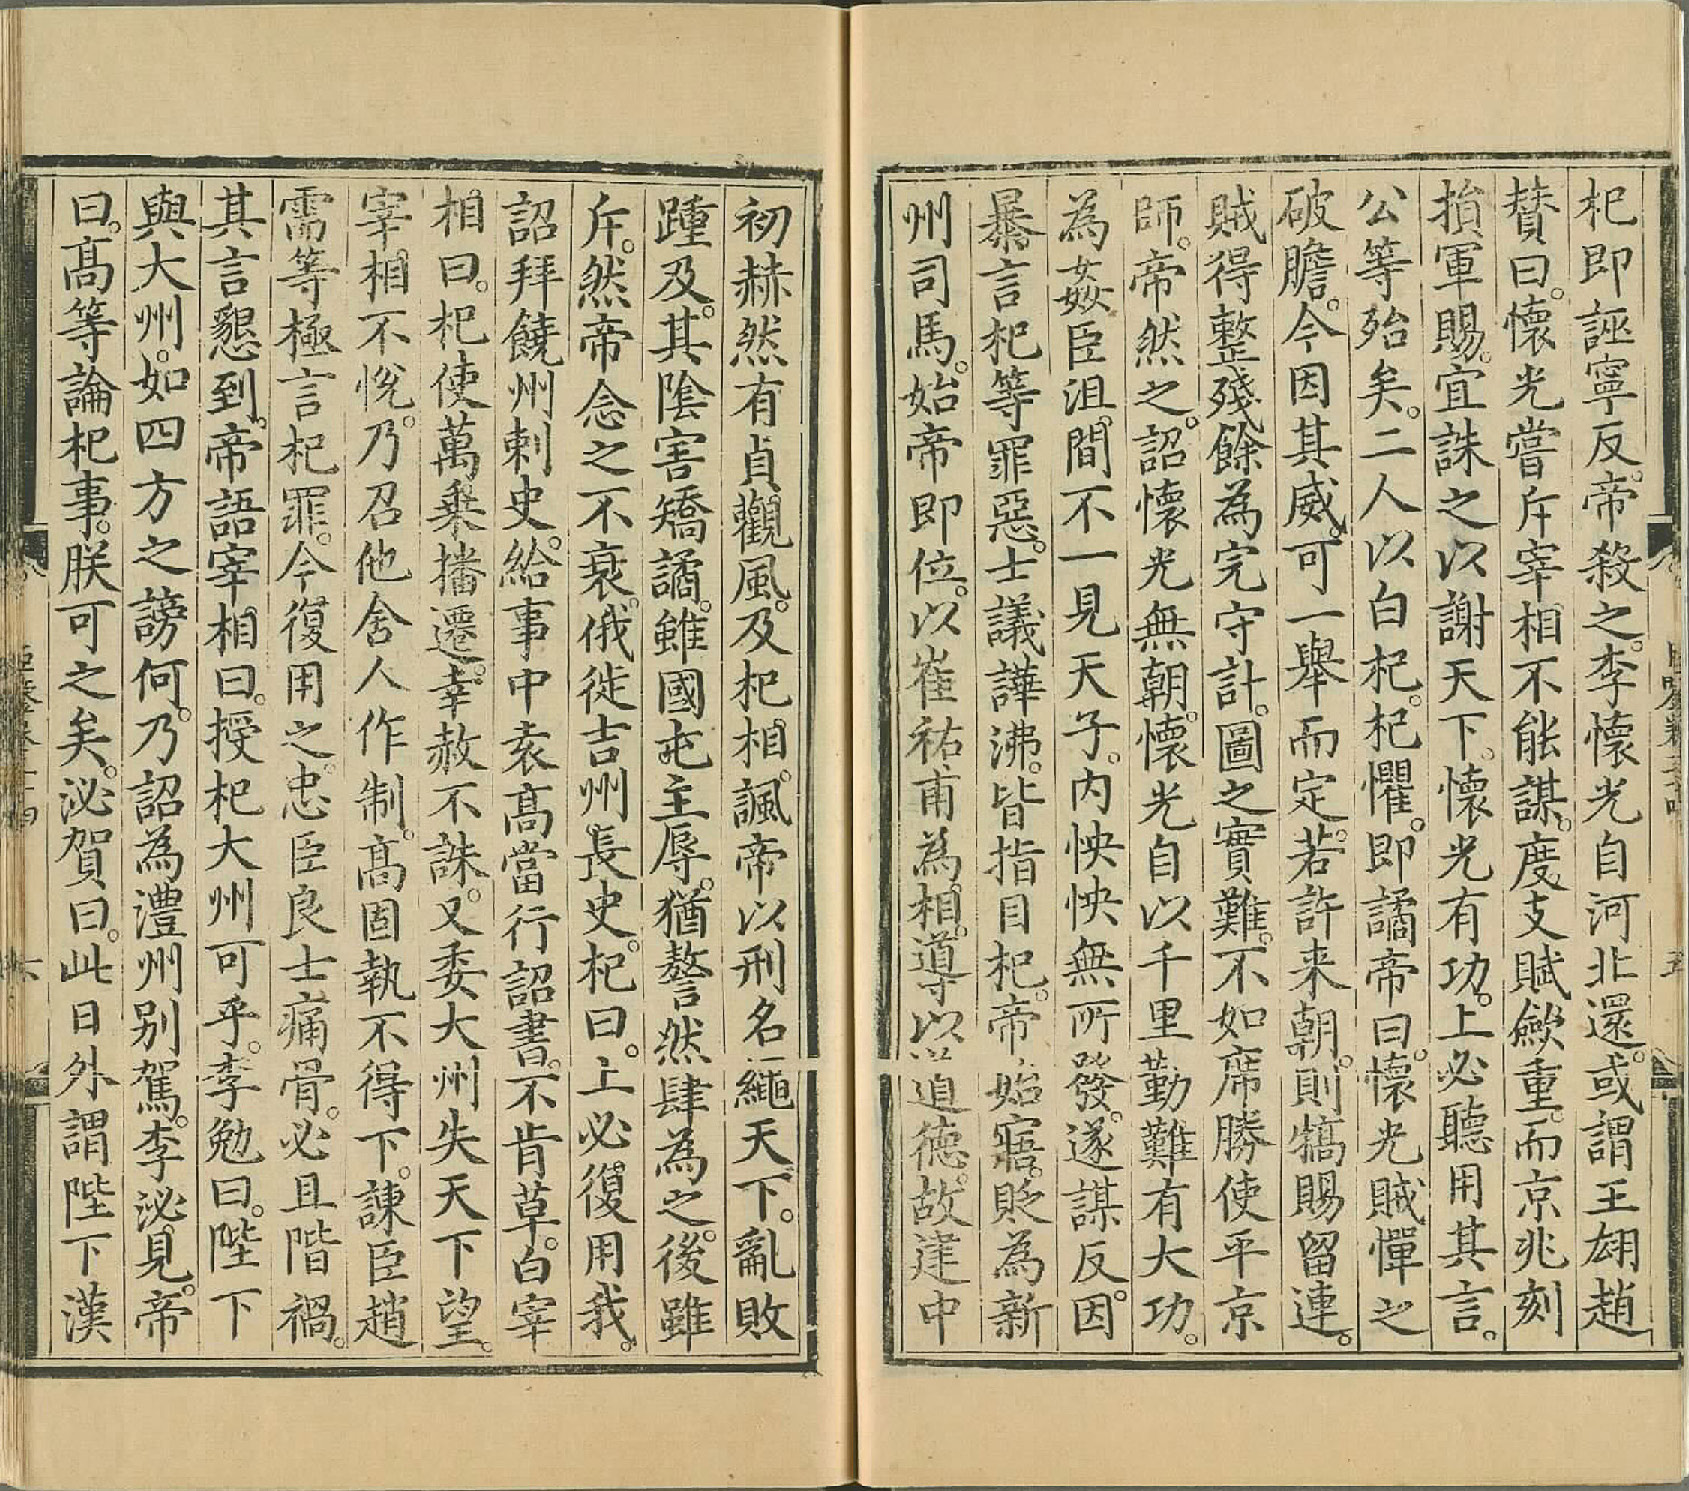 杞即誣寧反。帝殺之。李懷光自河北還。或謂王翃趙
贊曰。懷光嘗斥宰相不能謀。度支賦斂重。而京兆刻
損軍賜。宜誅之以謝天下。懷光有功。上必聽用其言。
公等殆矣。二人以白杞。杞懼。即譎帝曰。懷光賊憚之
破膽。今因其威。可一舉而定。若許来朝。則犒賜留連。
賊得整殘餘為完守計。圖之實難。不如席勝使平京
師。帝然之。詔懷光無朝。懷光自以千里勤難有大功。
為姦臣沮。間不一見天子。內怏怏無所發。遂謀反。因
暴言杞等罪惡。士議譁沸。皆指目杞。帝始寤。貶為新
州司馬。始帝即位。以崔祐甫為相。導以道德。故建中
初赫然有貞觀風。及杞相。諷帝以刑名繩天下。亂敗
踵及。其陰害矯譎。雖國屯主辱。猶謷然肆為之。後雖
斥。然帝念之不衰。俄徙吉州長史。杞曰。上必復用我。
詔拜饒州刺史。給事中袁高當行詔書。不肯草。白宰
相曰。杞使萬乘播遷。幸赦不誅。又委大州失天下望。
宰相不悅。乃召他舍人作制。高固執不得下。諫臣趙
需等極言杞罪。今復用之。忠臣良士痛骨。必且階禍。
其言懇到。帝語宰相曰。授杞大州可乎。李勉曰。陛下
與大州。如四方之謗何。乃詔為澧州别駕。李泌見。帝
曰。高等論杞事。朕可之矣。泌賀曰。此日外謂陛下漢
六